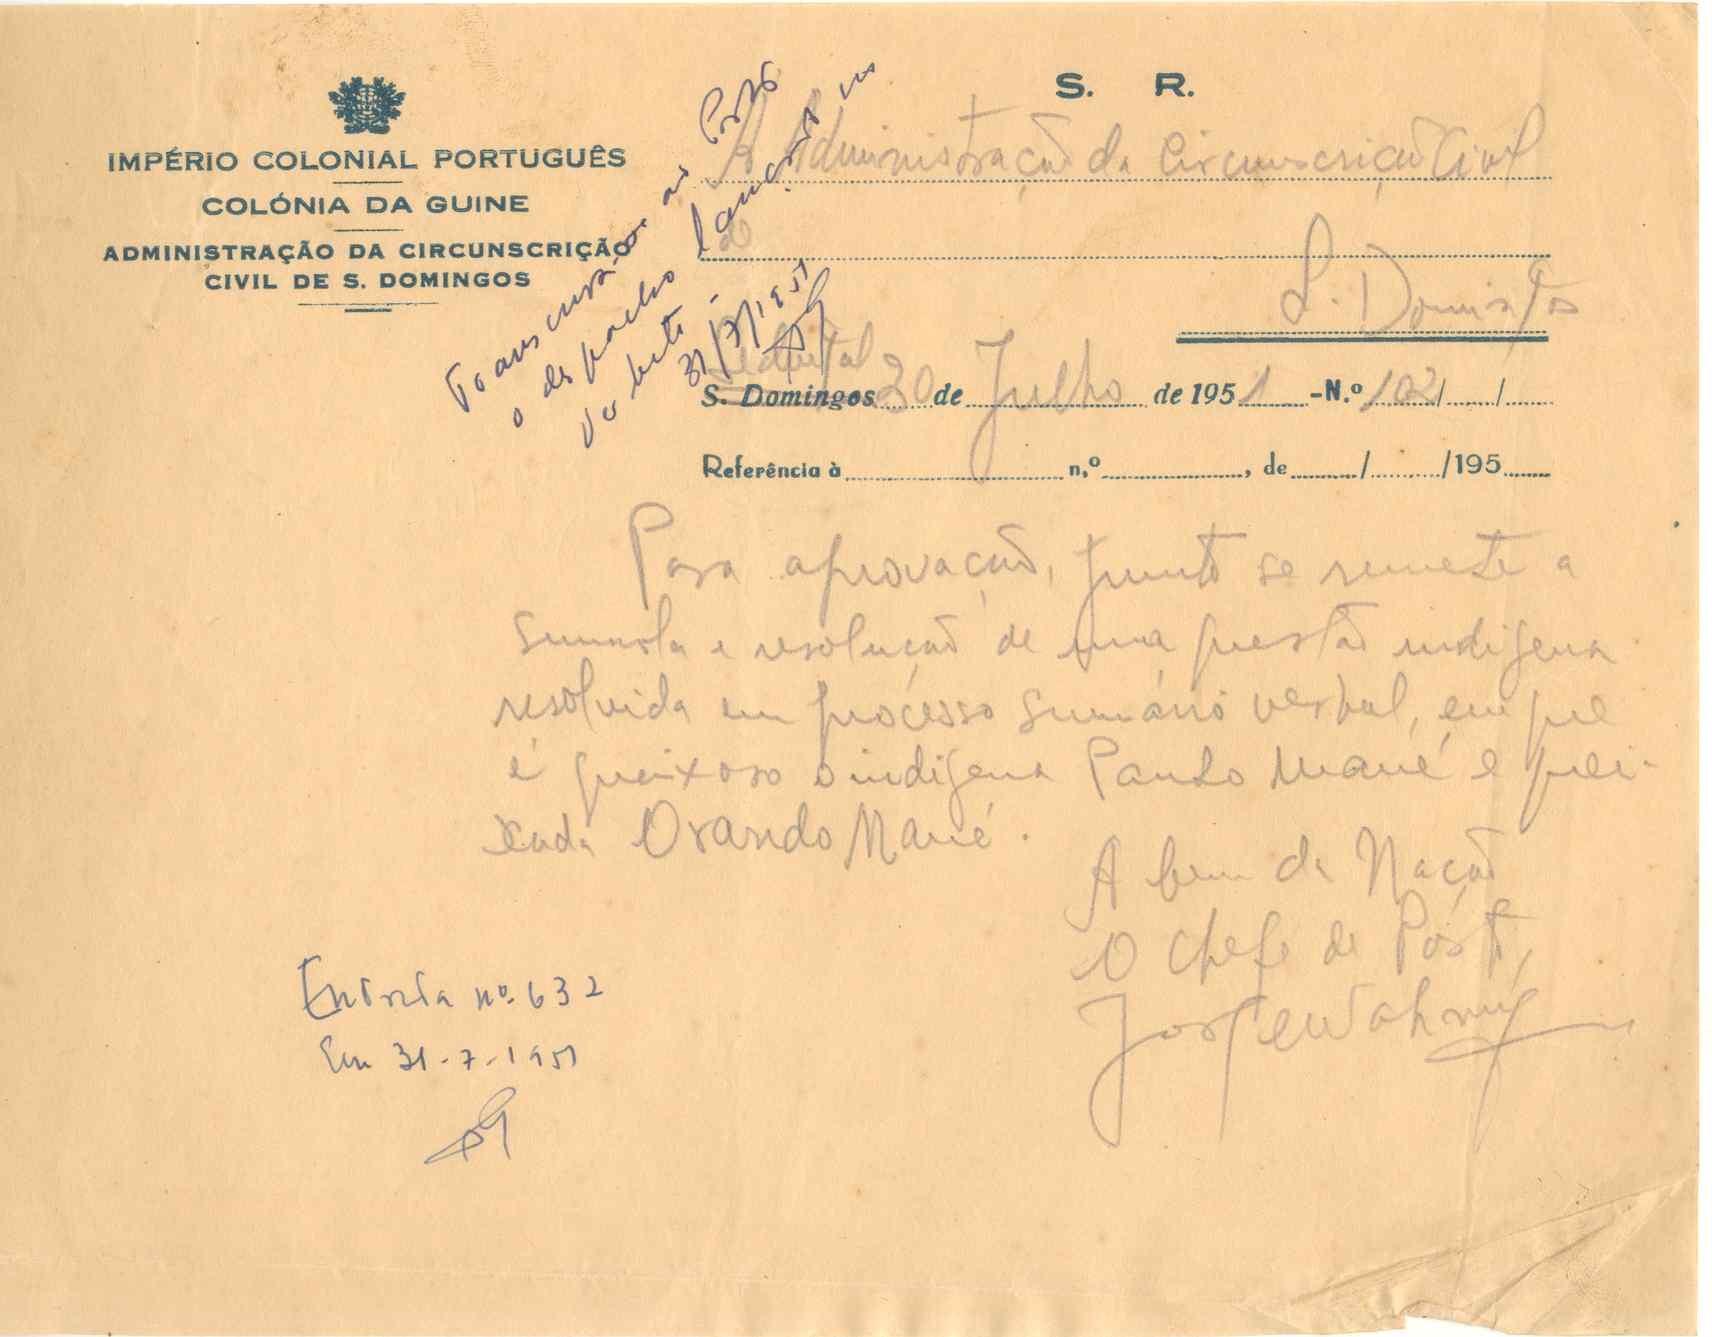 IMPÉRIO COLONIAL PORTUGUÊS
COLÓNIA DA GUINE
ADMINISTRAÇÃO DA CIRCUNSCRIÇÃO
CIVIL DE S. DOMINGOS
S. R.
Á Administração da Circunscrição Civil
de
S. Domingos
Transcreva-se ao Posto
o despacho lançado no
31/7/1951
S. Domingos 30 de Julho de 1951 -N.º 102/ /
Referência à n,º , de / /195
Para aprovação, junto se remete a
sumula e resolução de uma questão indigena
resolvida em processo sumário verbal, em que
é queixoso o indigena Paulo Mané e quei-
xada Orando Mané.
A bem da Nação
O Chefe de Pôsto,
Entrada nº. 632
Em 31-7-1951